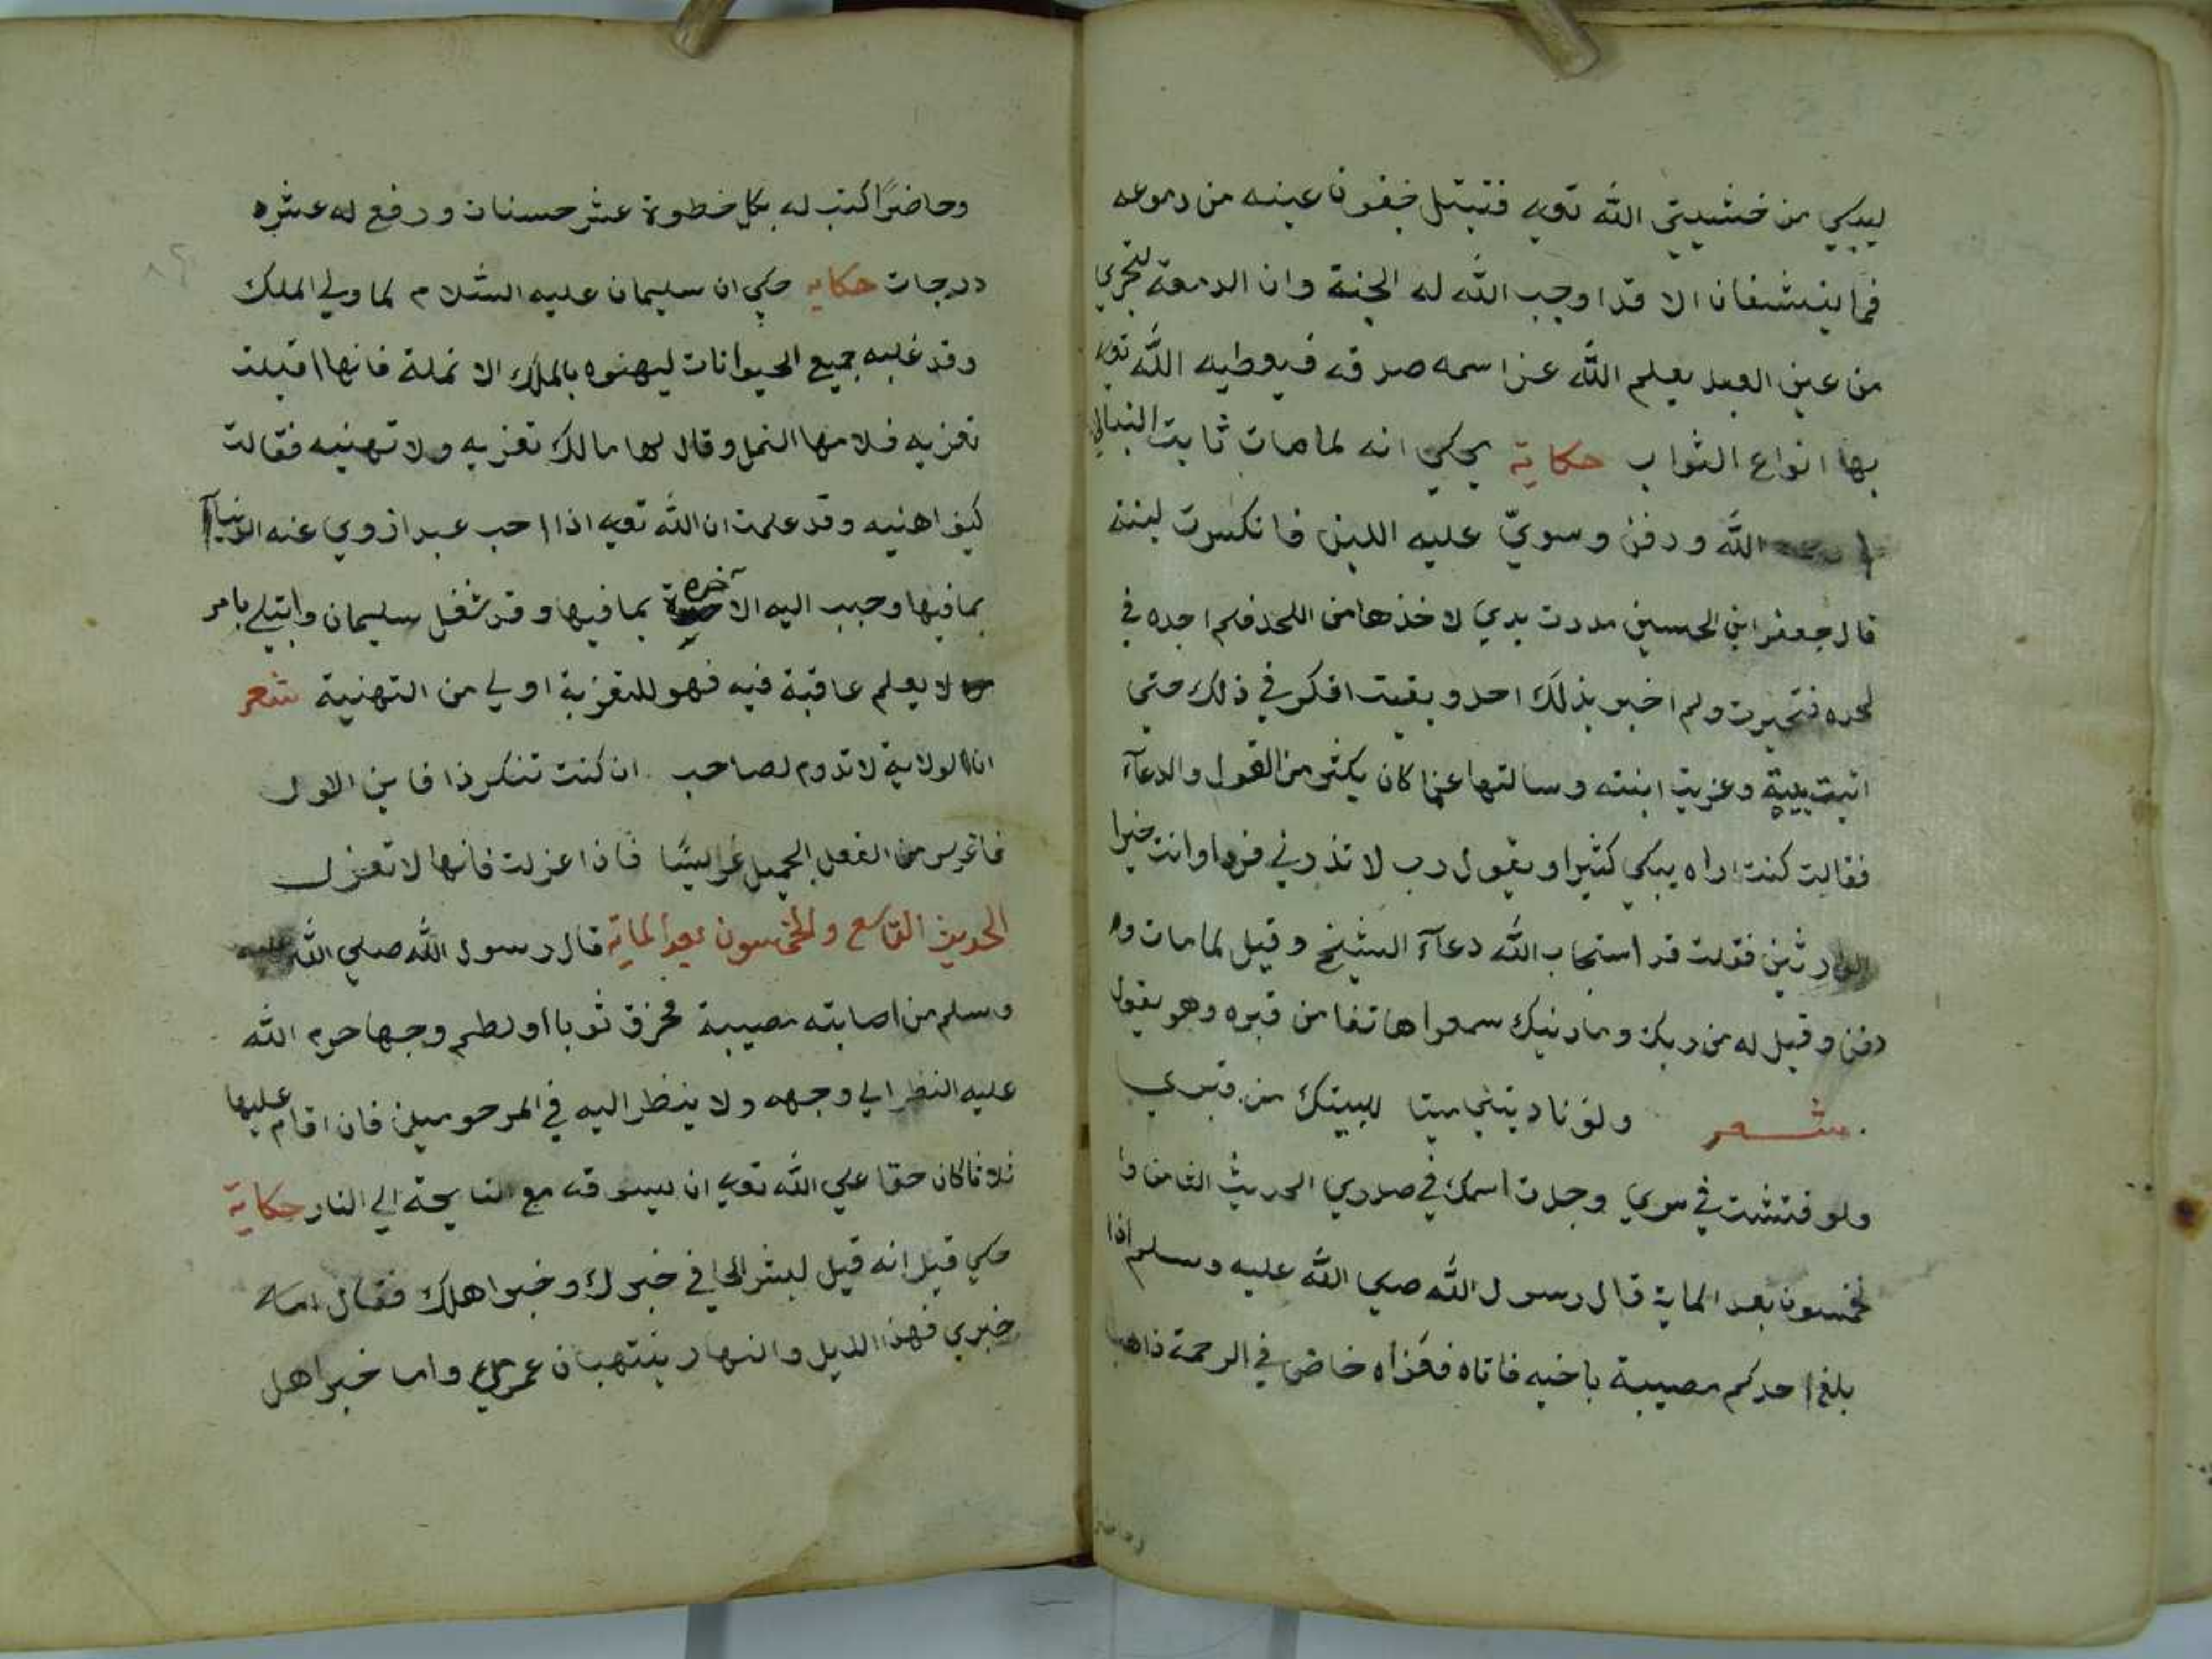 ليبكي من خشيتي الله تعه فتبتل جفون عينه من دموعه
فما ينشفان الا قد اوجب الله له الجنة وان الدمعة لتجري
من عين العبد يعلم الله عز اسمه صدقه فيعطيه الله تعه
بها انواع الثواب حكاية يحكي انه لما مات ثابت البناني
الله ودفن وسويّ عليه اللبن فانكسرت لبنة
قال جعفر ابن الحسين مددت يدي لاخذها من اللحد فلم اجده في
لحده فتحيرت ولم اخبر بذلك احد وبقيت افكر في ذلك حتي
اتيت بيته وعزيت ابنته وسالتها عما كان يكثر من القول والدعآء
فقالت كنت اراه يبكي كثيرا ويقول رب لا تذرني فردا وانت خير ا
الوارثين فقلت قد استجاب الله دعآء الشيخ وقيل لما مات و
دفن وقيل له من ربك وما دينك سمعوا هاتفا من قبره وهو يقول
شعر ولو ناديتني ميتا للبيتك من قبري
ولو فتشت في سري وجدت اسمك في صدري الحديث الثامن وا
لخمسون بعد الماية قال رسول الله صلي الله عليه وسلم اذا
بلغ احدكم مصيبة باخيه فاتاه فعزاه خاض في الرحمة ذاهبا
وحاضرًا كتب له بكل خطوة عشر حسنات ورفع له عشره
درجات حكايه حكي ان سليمان عليه السلام لما ولي الملك
وقد غلبه جميع الحيوانات ليهنوه بالملك الا نملة فانها اقبلت
تعزيه فلامها النمل وقال لها مالك تعزيه ولا تهنيه فقالت
كيف اهنيه وقد علمت ان الله تعه اذا احب عبد ازوي عنه الدنيا
بمافيها وحبب اليه الاخره بمافيها وقد شغل سليمان وابتلي بامر
لا يعلم عاقبة فيه فهو للتعزية اولي من التهنية شعر
ان الولاية لا تدوم لصاحب ان كنت تنكر ذا فاين الاول
فاغرس من الفعل الجميل غرايسًا فاذا عزلت فانها لا تعزل
الحديث التاسع والخمسون بعد الماية قال رسول الله صلي الله عليه
وسلم من اصابته مصيبة فخرق ثوبا او لطم وجها حرم الله
عليه النظر الي وجهه ولا ينظر اليه في المرحومين فان اقام عليها
ثلاثا كان حقا علي الله تعه ان يسوقه مع النايحة الي النار حكاية
حكي قيل انه قيل لبشر الحافي خبرك وخبر اهلك فقال اما
خبري فهذا الليل والنهار ينتهبان عمري واما خبر اهل